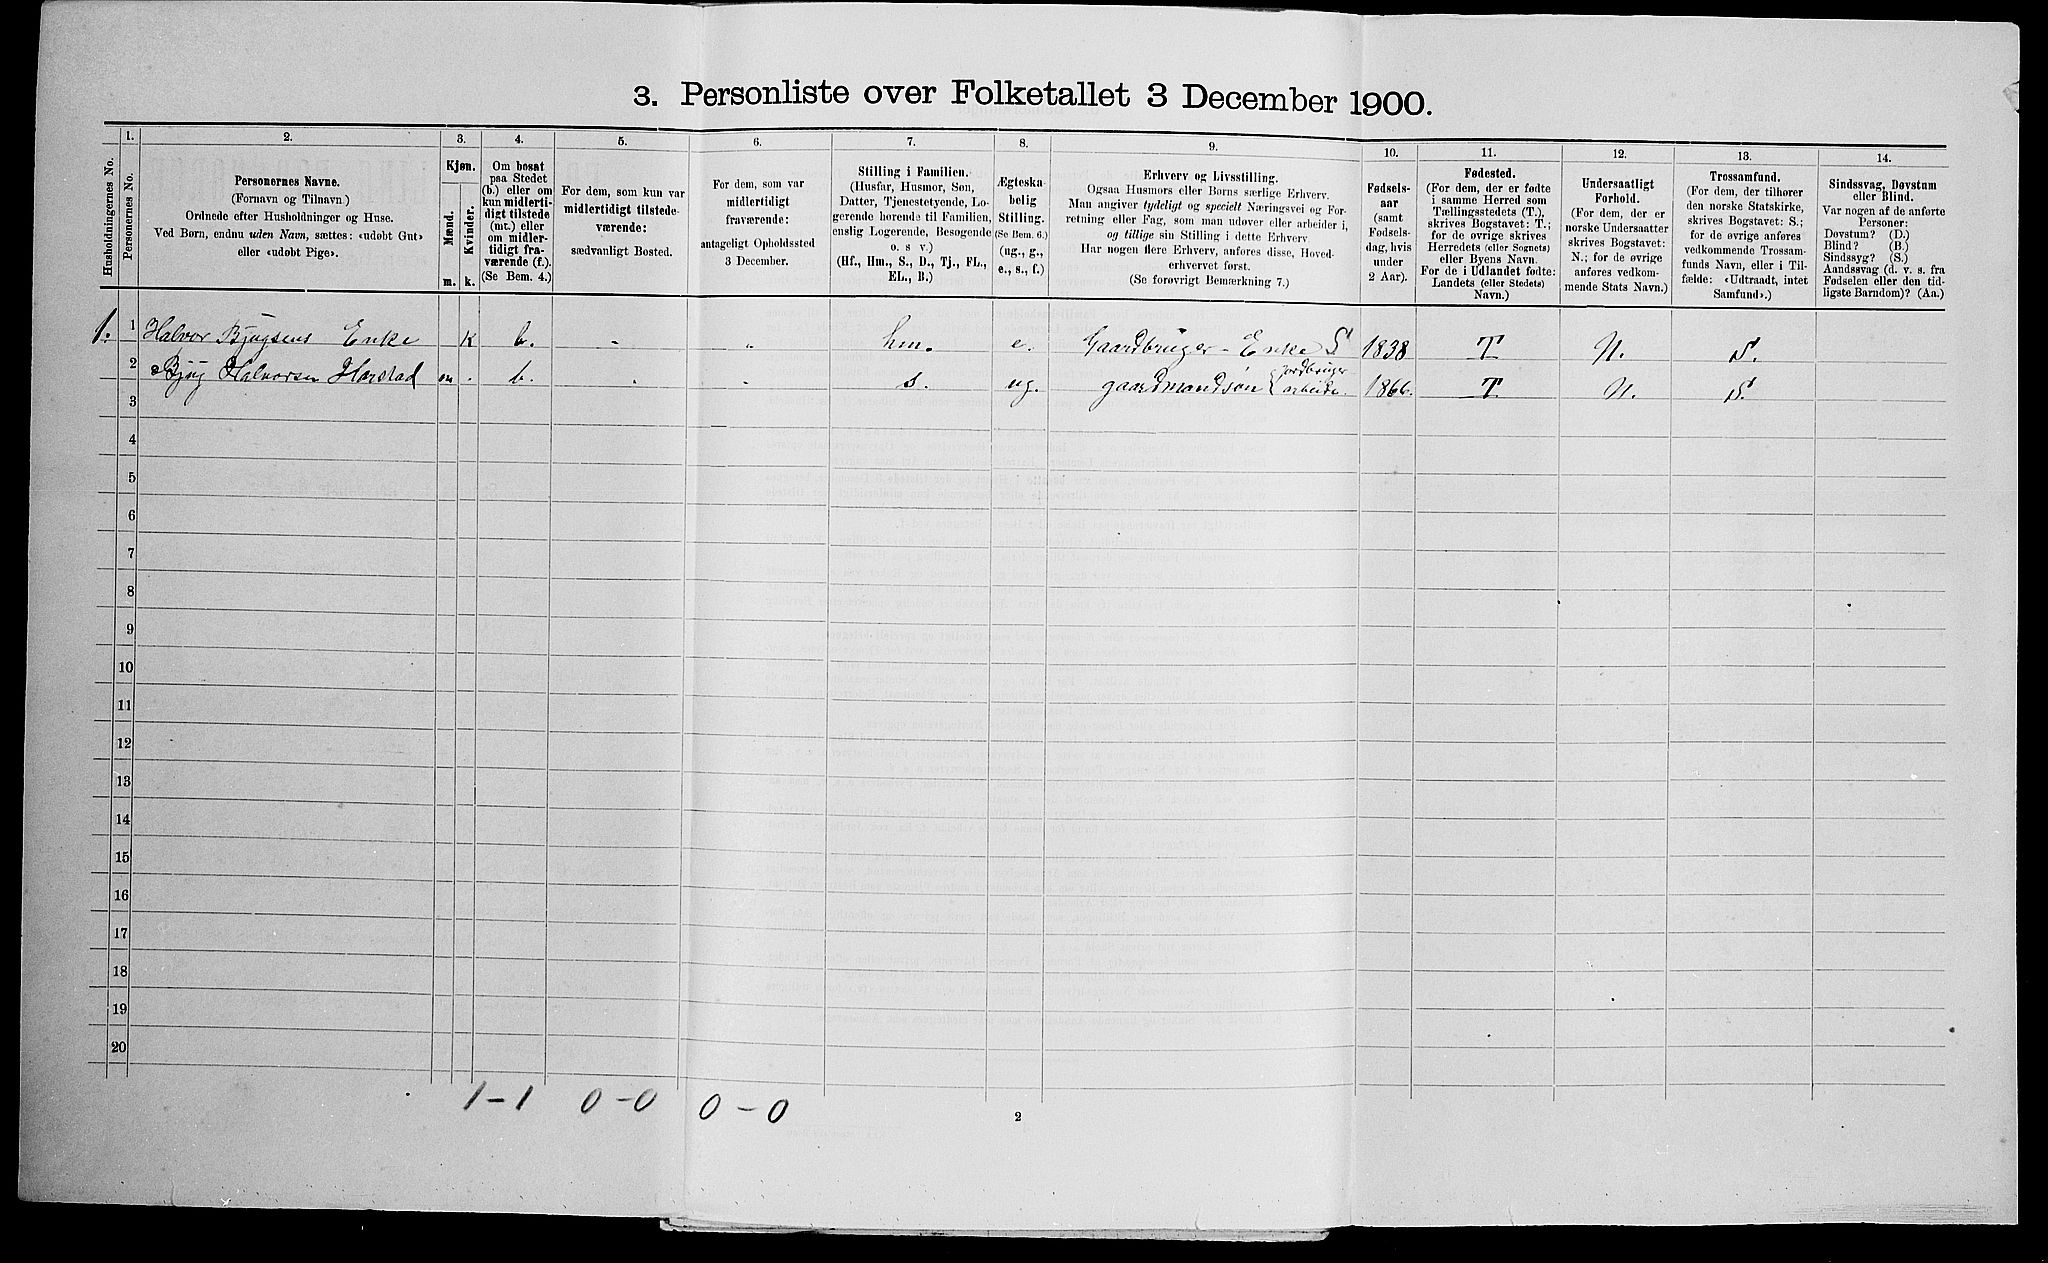 3. Personliste over Folketallet 3 December 1900.
Husholdningernes No.
1.
Personernes No.
2.
Personernes Navne.
(Fornavn og Tilnavn.)
Ordnede efter Husholdninger og Huse.
Ved Børn, endnu uden Navn, sættes: «udøbt Gut»
eller «udøbt Pige».
3.
Kjøn.
Mænd.
Kvinder.
m.
k.
4.
Om bosat
paa Stedet
(b.) eller om
kun midlerti-
digt tilstede
(mt.) eller
om midler-
tidigt fra-
værende (f.).
(Se Bem. 4.)
5.
For dem, som kun var
midlertidigt tilstede-
værende:
sædvanligt Bosted.
6.
For dem, som var
midlertidigt
fraværende:
antageligt Opholdssted
3 December.
7.
Stilling i Familien.
(Husfar, Husmor, Søn,
Datter, Tjenestetyende, Lo-
gerende hørende til Familien,
enslig Logerende, Besøgende
o. s v.)
(Hf., Hm., S., D., Tj., FL.,
EL., B.)
8.
Ægteska-
belig
Stilling.
(Se Bem. 6.)
(ug., g.,
e., s., f.)
9.
Erhverv og Livsstilling.
Ogsaa Husmors eller Børns særlige Erhverv.
Man angiver tydeligt og specielt Næringsvei og For-
retning eller Fag, som man udøver eller arbeider i,
og tillige sin Stilling i dette Erhverv.
Har nogen flere Erhverv, anføres disse, Hoved-
erhvervet først.
(Se forøvrigt Bemærkning 7.)
10.
Fødsels-
aar
(samt
Fødsels-
dag, hvis
under
2 Aar).
11.
Fødested.
(For dem, der er fødte
i samme Herred som
Tællingsstedets (T.),
skrives Bogstavet: T.;
for de øvrige skrives
Herredets (eller Sognets)
eller Byens Navn.
For de i Udlandet fødte:
Landets (eller Stedets)
Navn.)
12.
Undersaatligt
Forhold.
(For dem, der er
norske Undersaatter
skrives Bogstavet:
N.; for de øvrige
anføres vedkom-
mende Stats Navn.)
13.
Trossamfund.
(For dem, der tilhører
den norske Statskirke,
skrives Bogstavet: S.;
for de øvrige anføres
vedkommende Trossam-
funds Navn, eller i Til-
fælde: «Udtraadt, intet
Samfund».)
14.
Sindssvag, Døvstum
eller Blind.
Var nogen af de anførte
Personer:
Døvstum? (D.)
Blind? (B.)
Sindssyg? (S.)
Aandssvag (d. v. s. fra
Fødselen eller den tid-
ligste Barndom)? (Aa.)
1. 1 Halvor Bjugsens Enke K b. - " hm. e. Gaardbruger - Enke S 1838 T N. S.
2 Bjug Halvorsen Harstad m . b. " - s. ug. gaardmandsøn { jordbruger arbeide. 1866. T. N. S.
3
4
5
6
7
8
9
10
11
12
13
14
15
16
17
18
19
20
1-1 0-0 0-0
2